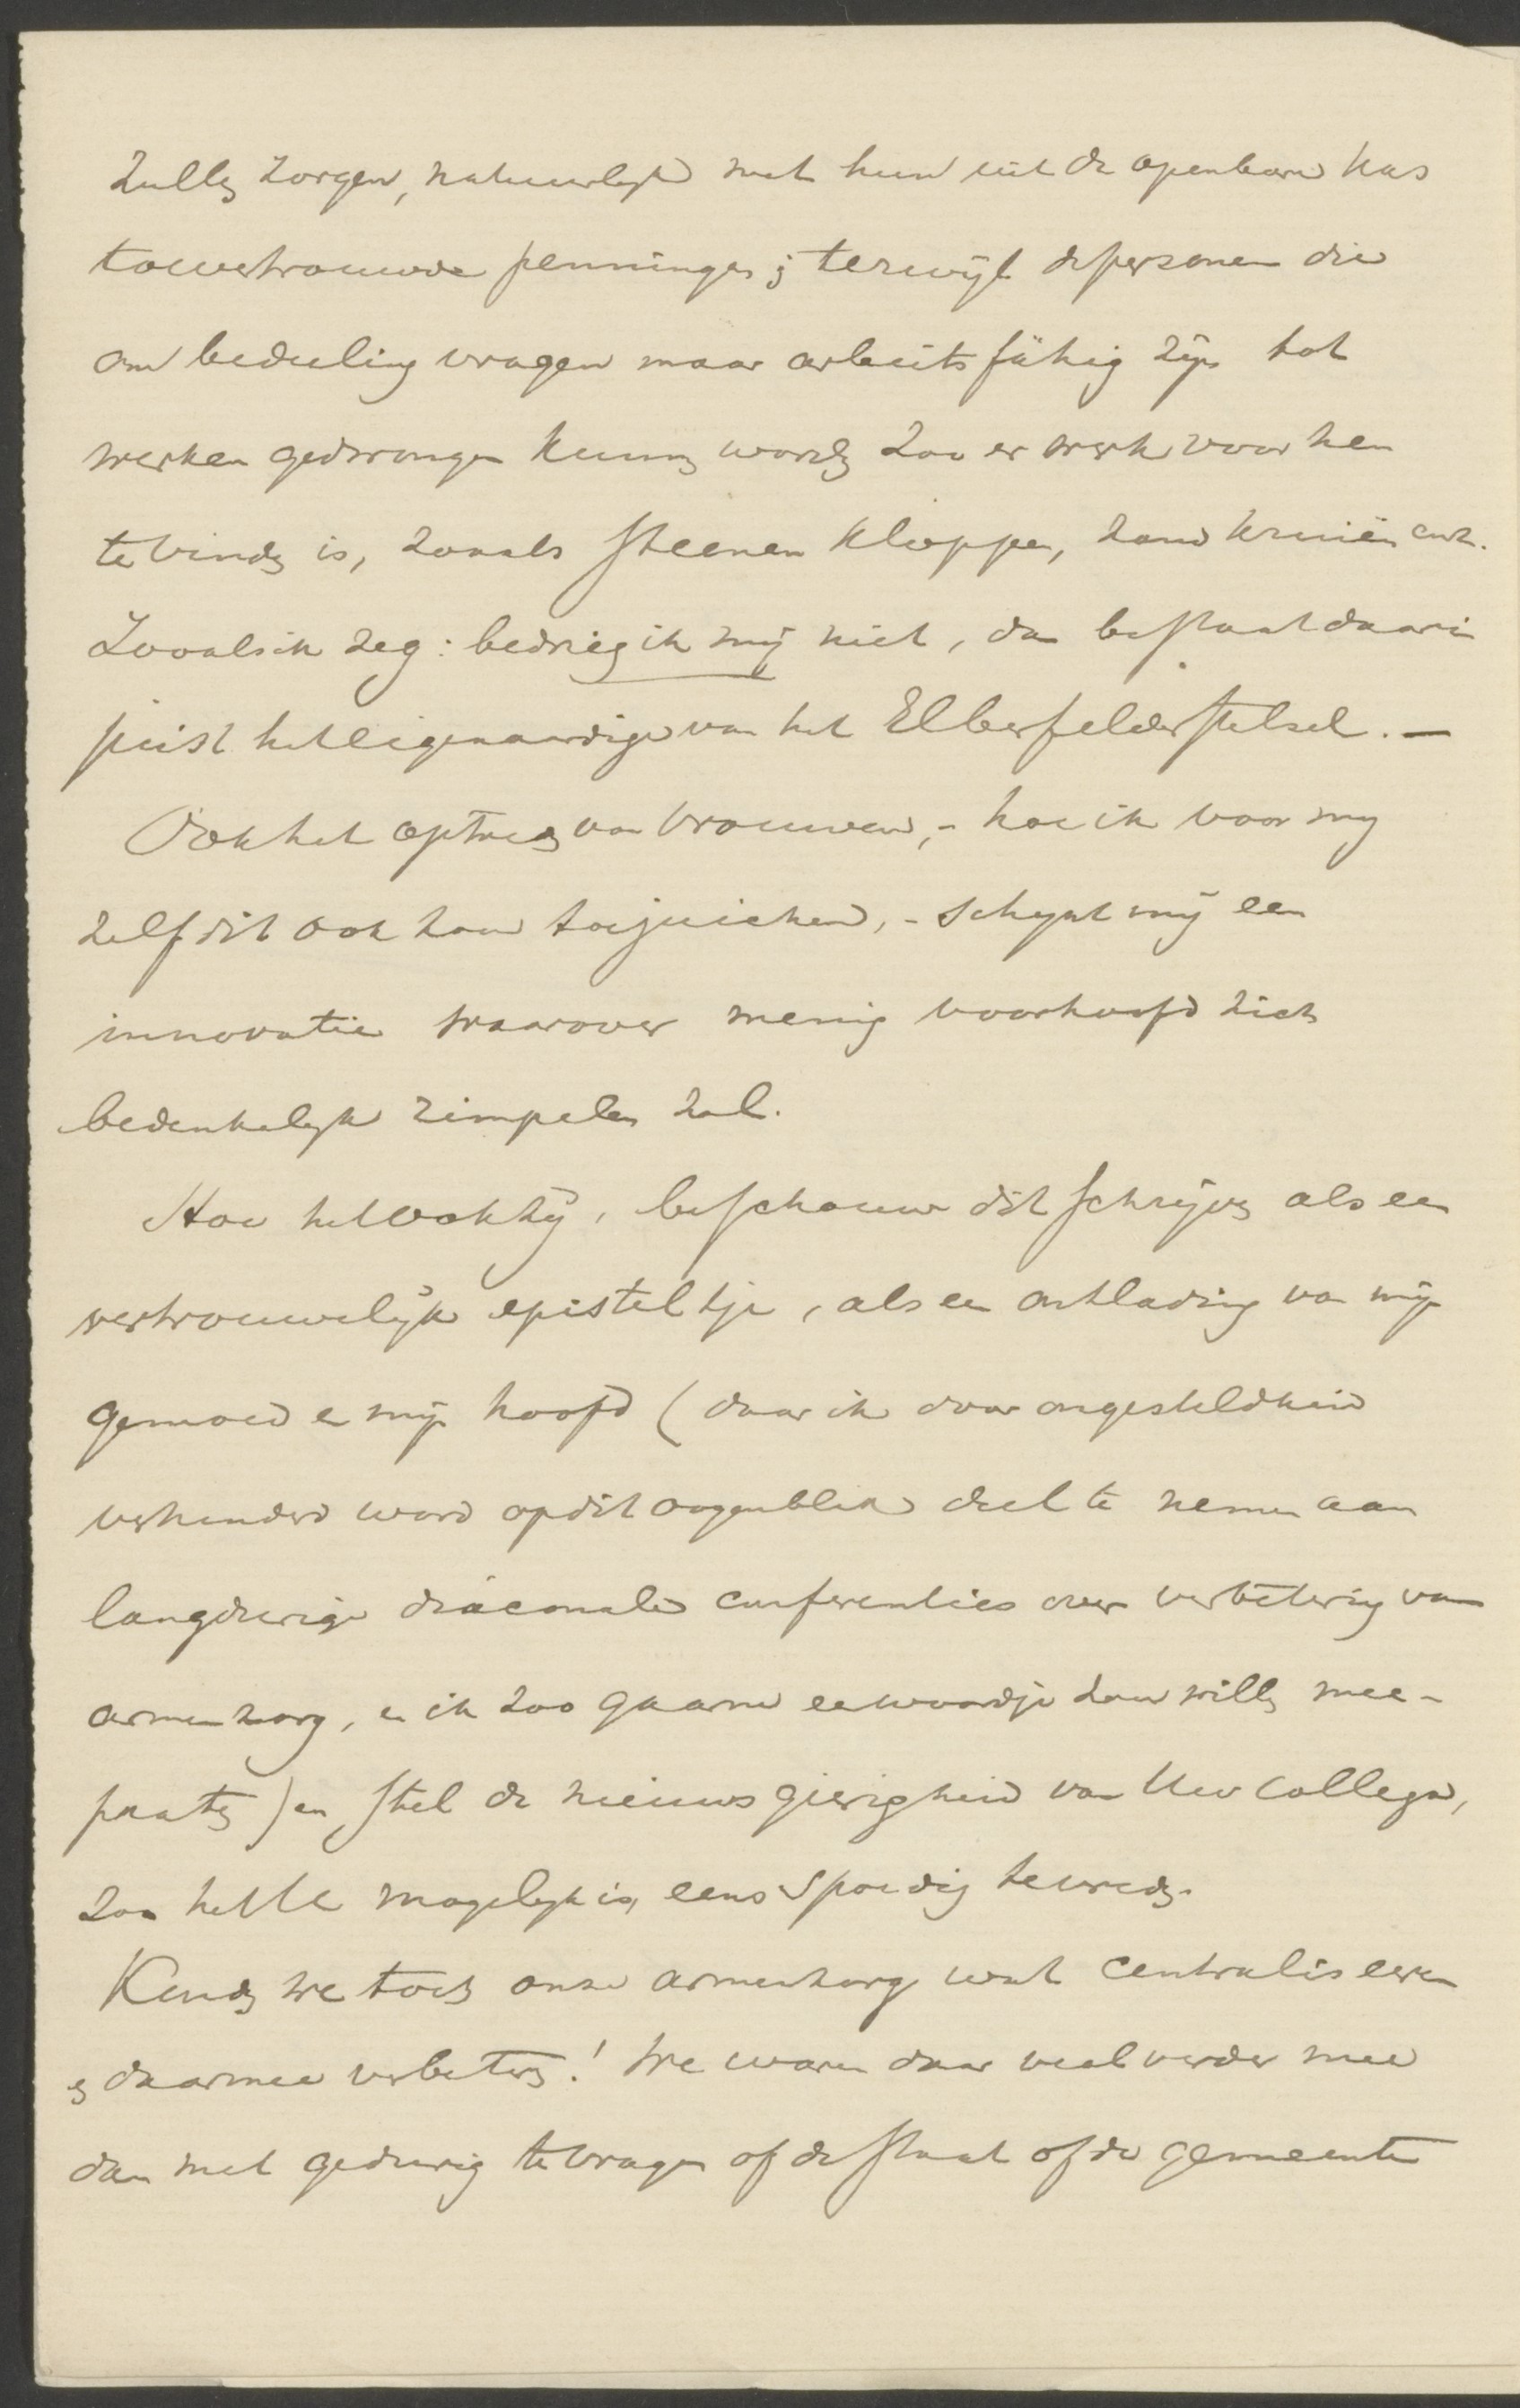 zullen zorgen, natuurlijk met hun uit de openbare kas
toevertrouwde penningen; terwijl de personen die
om bedeeling vragen maar arbeitsfähig zijn tot
werken gedwongen kunnen worden zoo er werk voor hen
te vinden is, zooals steenen kloppen, zand kruiën enz.
Zooals ik zeg: bedrieg ik mij niet, dan bestaat daarin
juist het eigenaardige van het Elberfelderstelsel. —
Ook het optreden van vrouwen, - hoe ik voor mij
zelf dit ook zou toejuichen, - schijnt mij een
innovatie waarover menig voorhoofd zich
bedenkelijk rimpelen zal.
Hoe het ook zij, beschouw dit schrijven als een
vertrouwelijk episteltje, als een ontlading van mijn
gemoed en mijn hoofd (daar ik door ongesteldheid
verhinderd word op dit oogenblik deel te nemen aan
langdurige diaconale conferenties over verbetering van
armenzorg, en ik zoo gaarne een woordje zou willen mee-
praten) en stel de nieuwsgierigheid van Uw collega,
zoo het U mogelijk is, eens spoedig tevreden.
Konden we toch onze armenzorg wat centraliseeren
en daarmee verbeteren! We waren daar veel verder mee
dan met gedurig te vragen of de staat of de gemeente